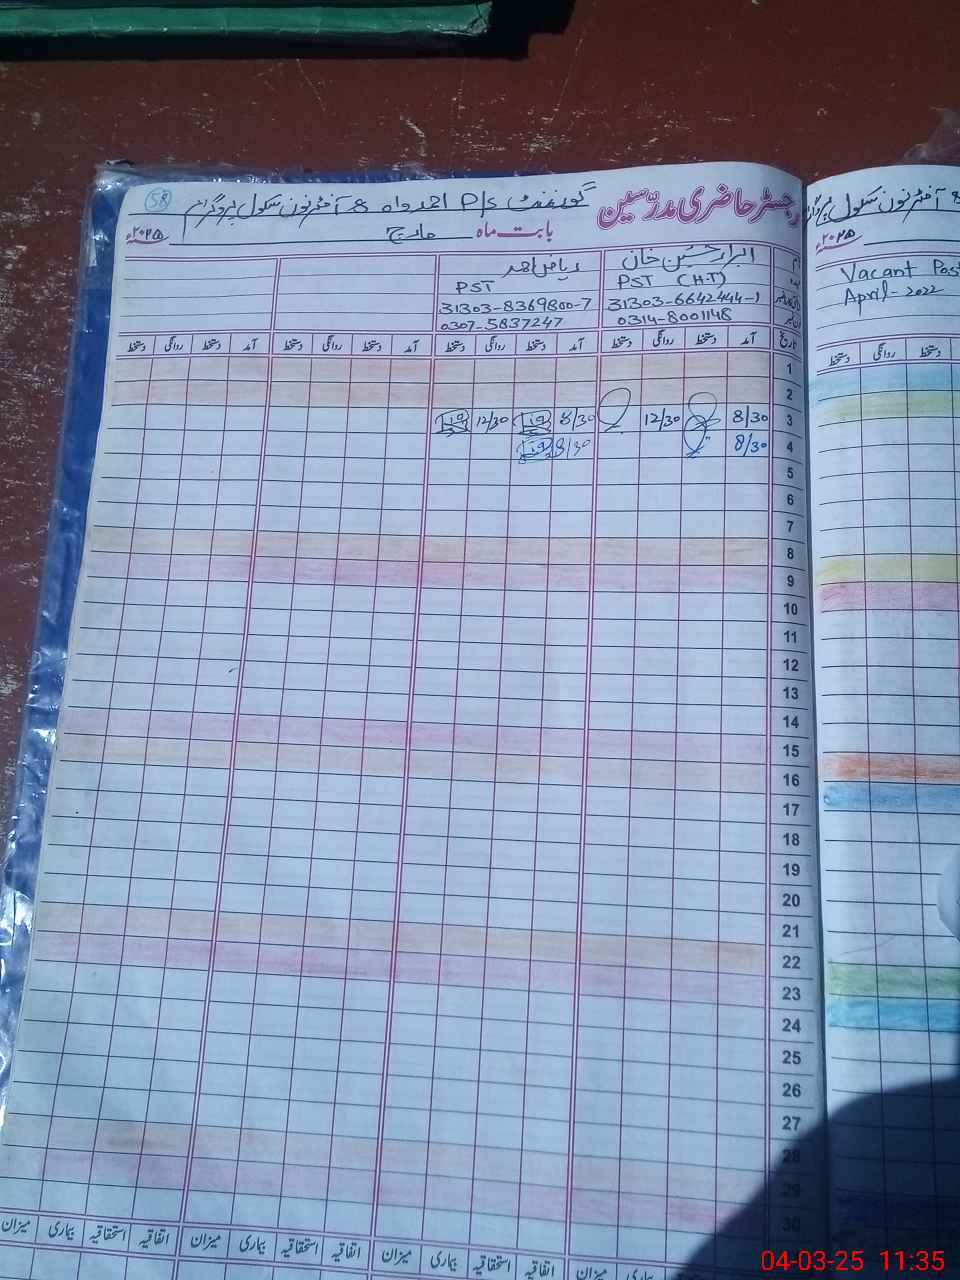 رجسٹر حاضری مدرّسین
گورنمنٹ P/S احمد واہ & آفٹر نون سکول پروگرام
58
بابت ماہ مارچ ۲۰۲۵ء
ابرار حسین خان
PST (H.T)
31303-6642444-1
0314-8001148
ریاض احمد
PST
31303-8369800-7
0307-5837247
تاریخ آمد دستخط روانگی دستخط آمد دستخط روانگی دستخط آمد دستخط روانگی دستخط آمد دستخط روانگی دستخط
1
2
3 8/30 12/30 8/30 12/30
4 8/30 8/30
5
6
7
8
9
10
11
12
13
14
15
16
17
18
19
20
21
22
23
24
25
26
27
28
29
30
اتفاقیہ استحقاقیہ بیماری میزان اتفاقیہ استحقاقیہ بیماری میزان اتفاقیہ استحقاقیہ بیماری میزان
& آفٹر نون سکول
۲۰۲۵ء
Vacant Post
April-2022
دستخط روانگی دستخط
04-03-25 11:35